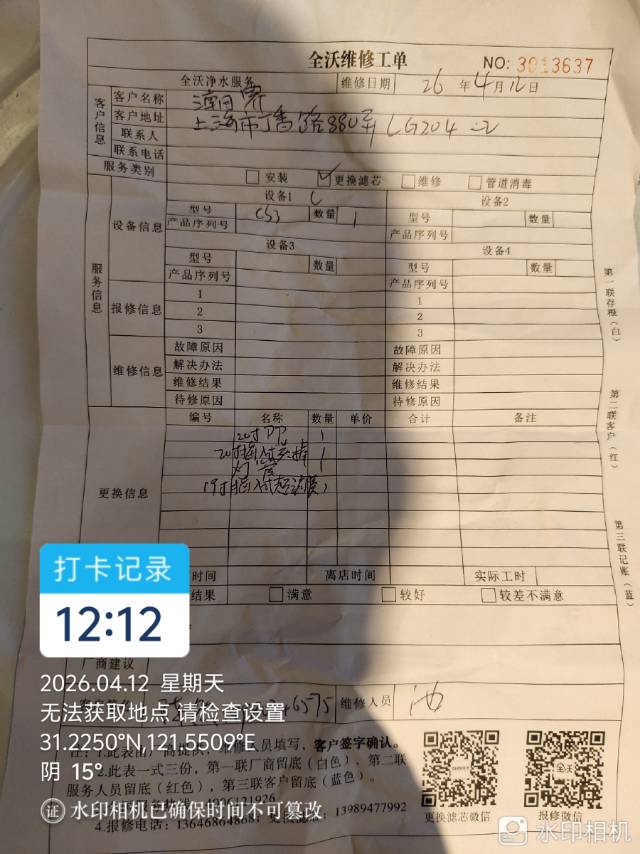 全沃维修工单
NO: 3013637
全沃净水服务 维修日期 26 年 4 月 12 日
客户信息
客户名称
客户地址 上海市丁香路880弄LG204
联系人
联系电话
服务类别 安装 更换滤芯 维修 管道消毒
服务信息
设备信息
设备1 设备2
型号 数量 1 型号 数量
产品序列号 产品序列号
设备3 设备4
型号 数量 型号 数量
产品序列号 产品序列号
报修信息
1 1
2 2
3 3
维修信息
故障原因 故障原因
解决办法 解决办法
维修结果 维修结果
待修原因 待修原因
更换信息
编号 名称 数量 单价 合计 备注
20寸PP 1
1
时间 离店时间 实际工时
结果 满意 较好 较差不满意
厂商建议
6575 维修人员
第一联存根(白)
第二联客户(红)
第三联记账(蓝)
填写,客户签字确认。
2.此表一式三份,第一联厂商留底(白色),第二联
服务人员留底(红色),第三联客户留底(蓝色)。
4.报修电话:13646864868; 13989477992
更换滤芯微信
报修微信
全沃
打卡记录
12:12
2026.04.12 星期天
无法获取地点,请检查设置
31.2250°N,121.5509°E
阴 15°
证 水印相机已确保时间不可篡改
水印相机